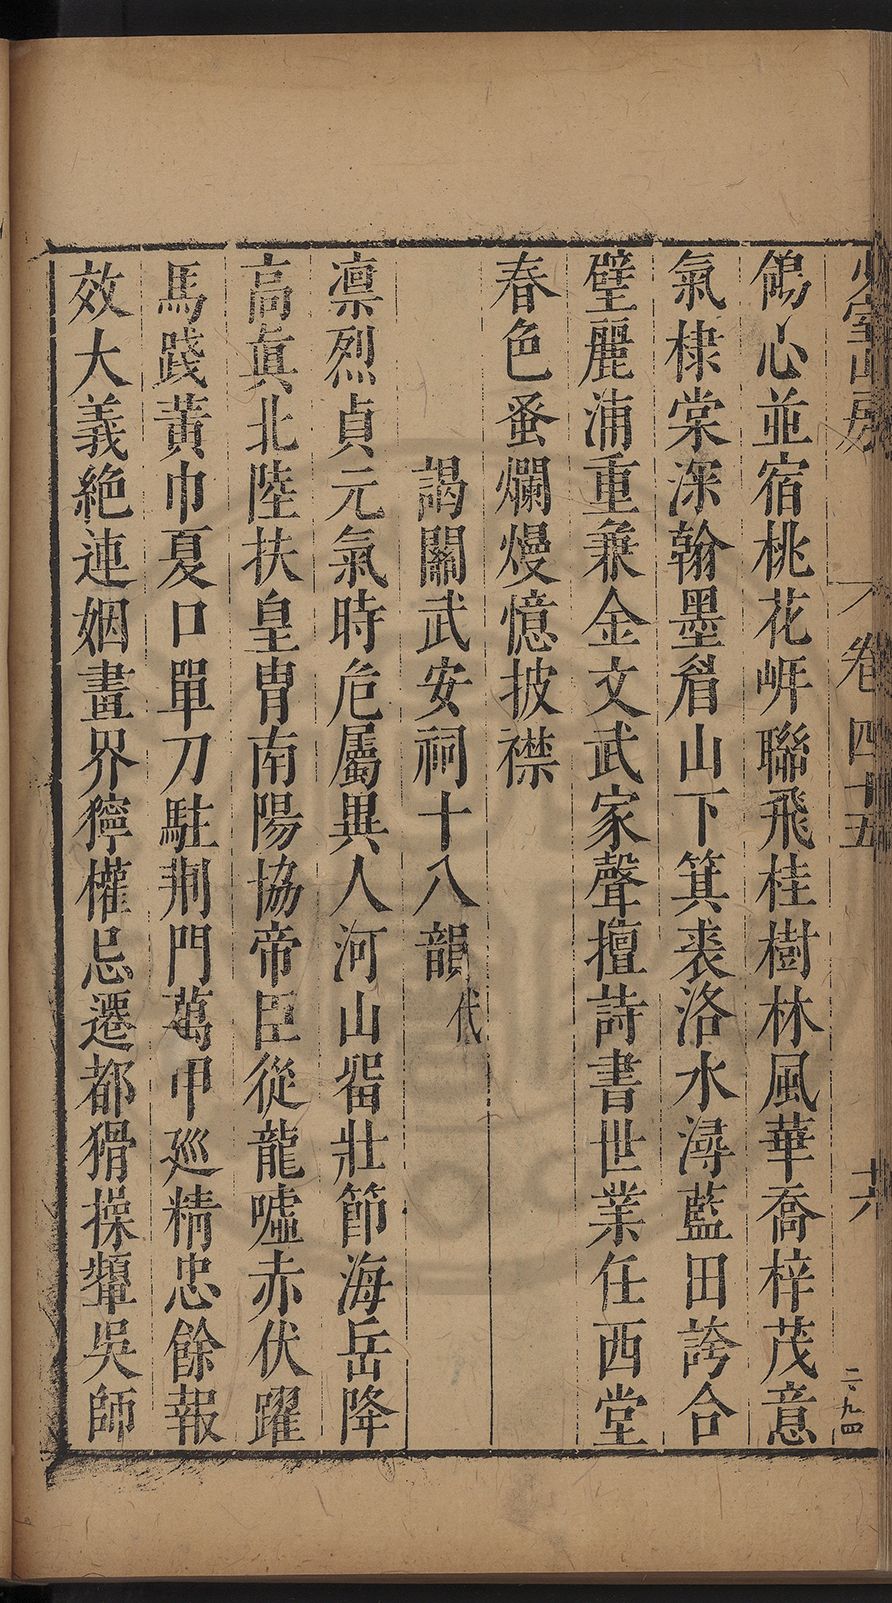 少室山房
卷四十五
二九四
鴿心並宿桃花岍聯飛桂樹林風華喬梓茂意
氣棣棠深翰墨眉山下箕裘洛水潯藍田誇合
璧麗浦重兼金文武家聲擅詩書世業任西堂
春色蚤爛熳憶披襟
謁關武安祠十八韻代
凛烈貞元氣時危屬異人河山留壯節海岳降
高眞北陸扶皇胄南陽協帝臣從龍噓赤伏躍
馬踐黃巾夏口單刀駐荆門萬甲廵精忠餘報
效大義絶連姻畫界獰權忌遷都猾操顰吳師